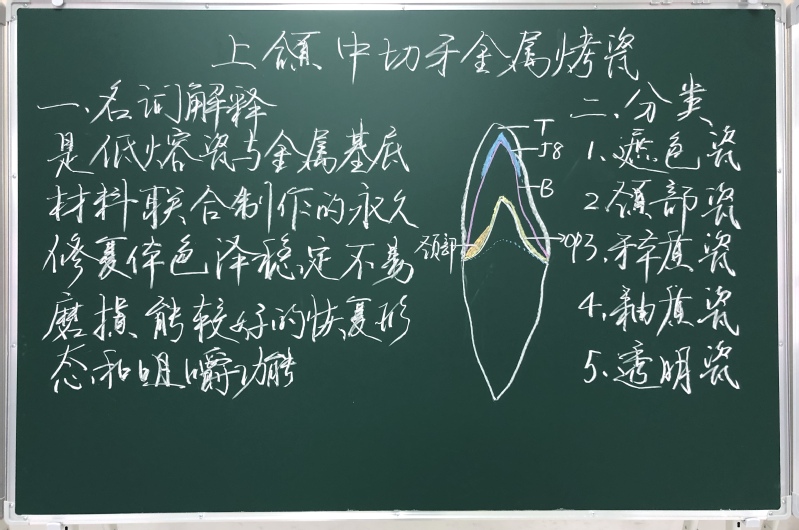 上颌中切牙金属烤瓷
一、名词解释
是低熔瓷与金属基底
材料联合制作的永久
修复体色泽稳定不易
磨损能较好的恢复形
态和咀嚼功能
T
J8
B
颈部
OP
二、分类
1、遮色瓷
2、颈部瓷
3、牙本质瓷
4、釉质瓷
5、透明瓷